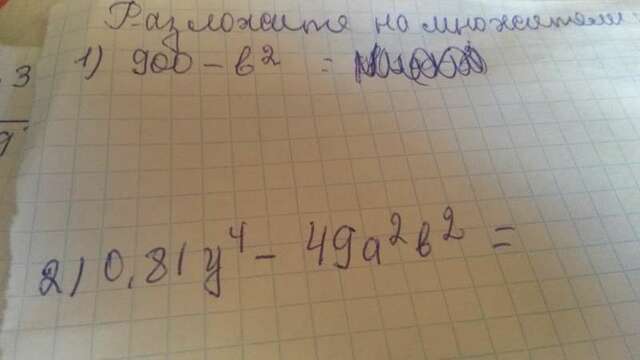 Разложите на множители
1) 900 - в² =
3
9
2) 0,81y⁴ - 49a²в² =